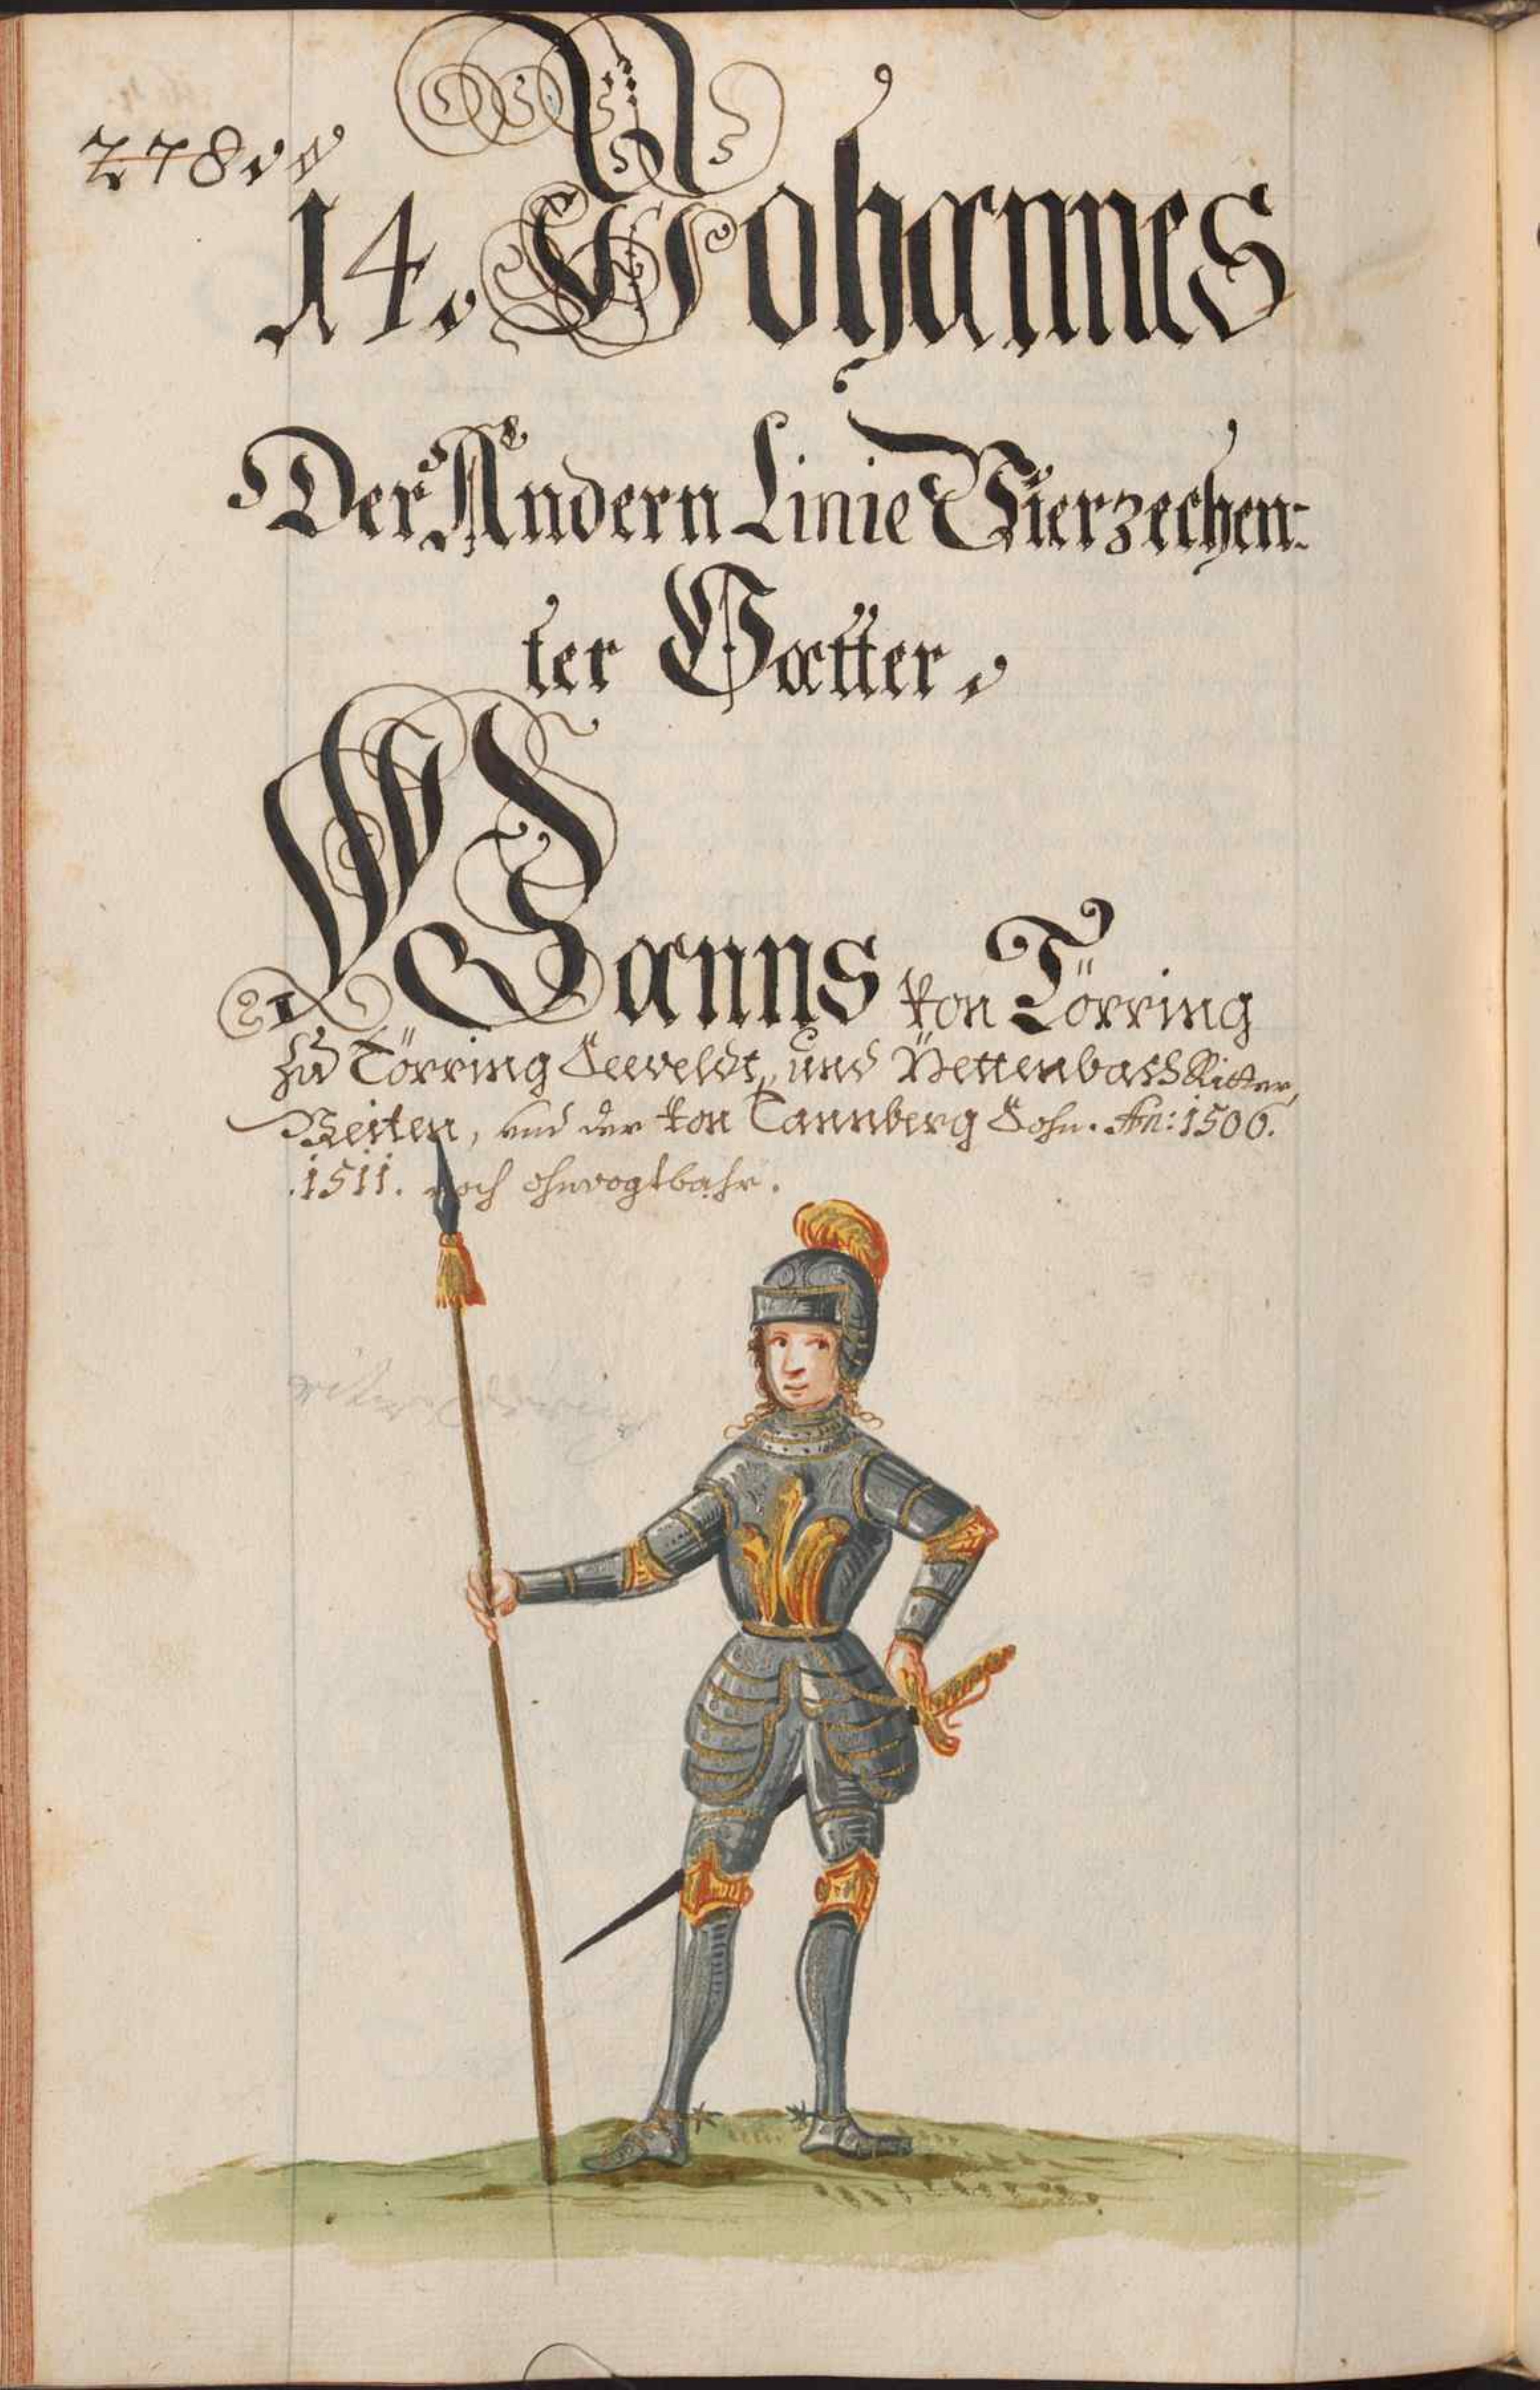 278.
14. Johannes
Der Andern Linie Vierzechen-
ter Vatter.
Hanns von Törring
zu Törring Seeveldt, und Rettenbach Ritter,
Veiten, und der von Tannberg Sohn. An: 1506.
.1511. noch ohnvogtbahr.